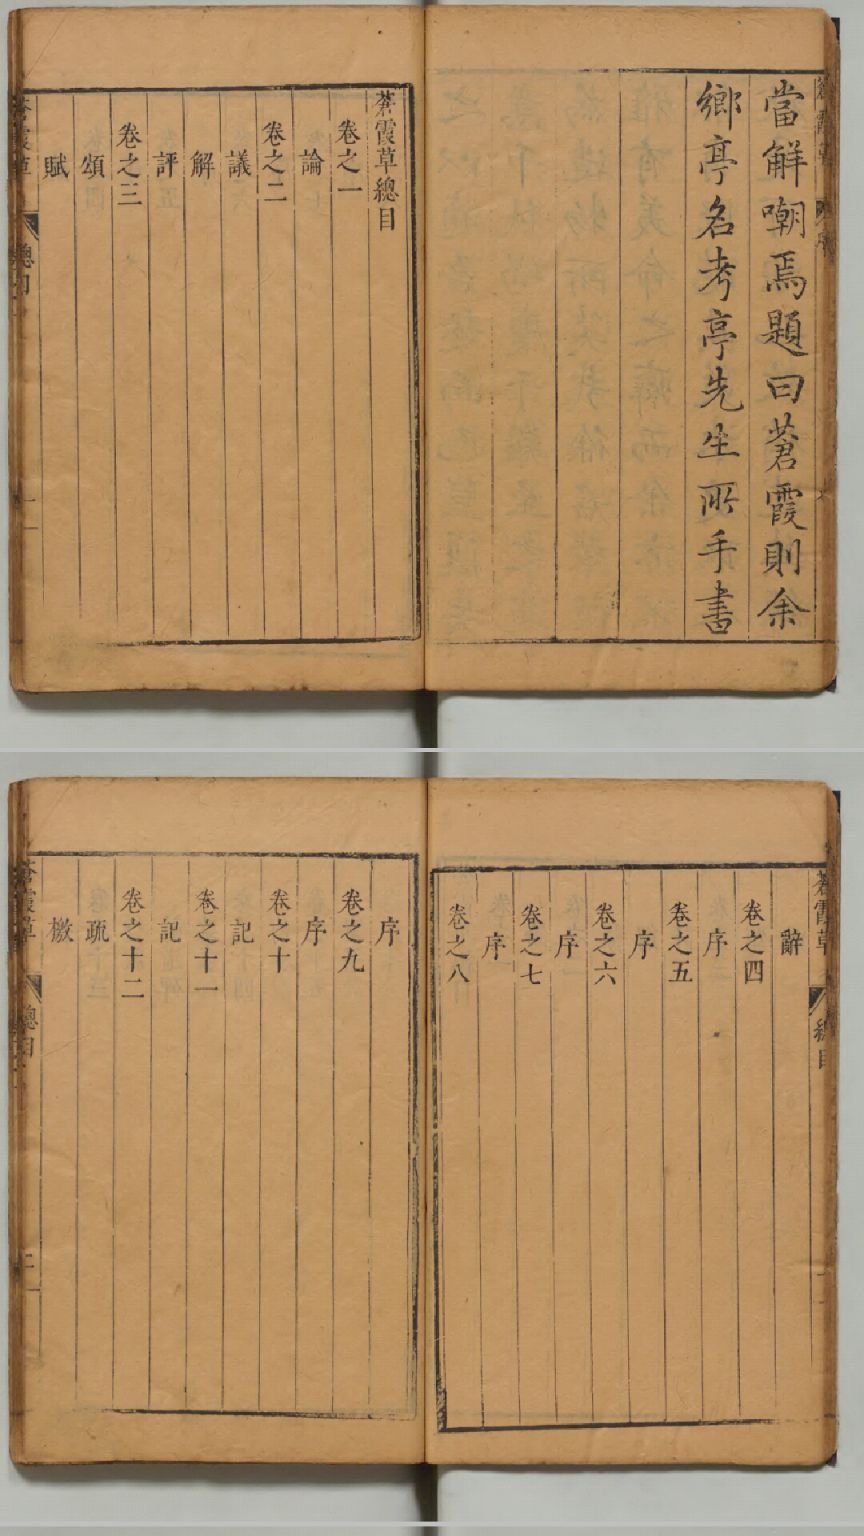 當解嘲焉題曰蒼霞則余
鄉亭名考亭先生所手書
蒼霞草總目
卷之一
論
卷之二
議
解
評
卷之三
頌
賦
蒼霞草
總目
蒼霞草
總目
辭
卷之四
序
卷之五
序
卷之六
序
卷之七
序
卷之八
序
卷之九
序
卷之十
記
卷之十一
記
卷之十二
疏
檄
蒼霞草
總目
二